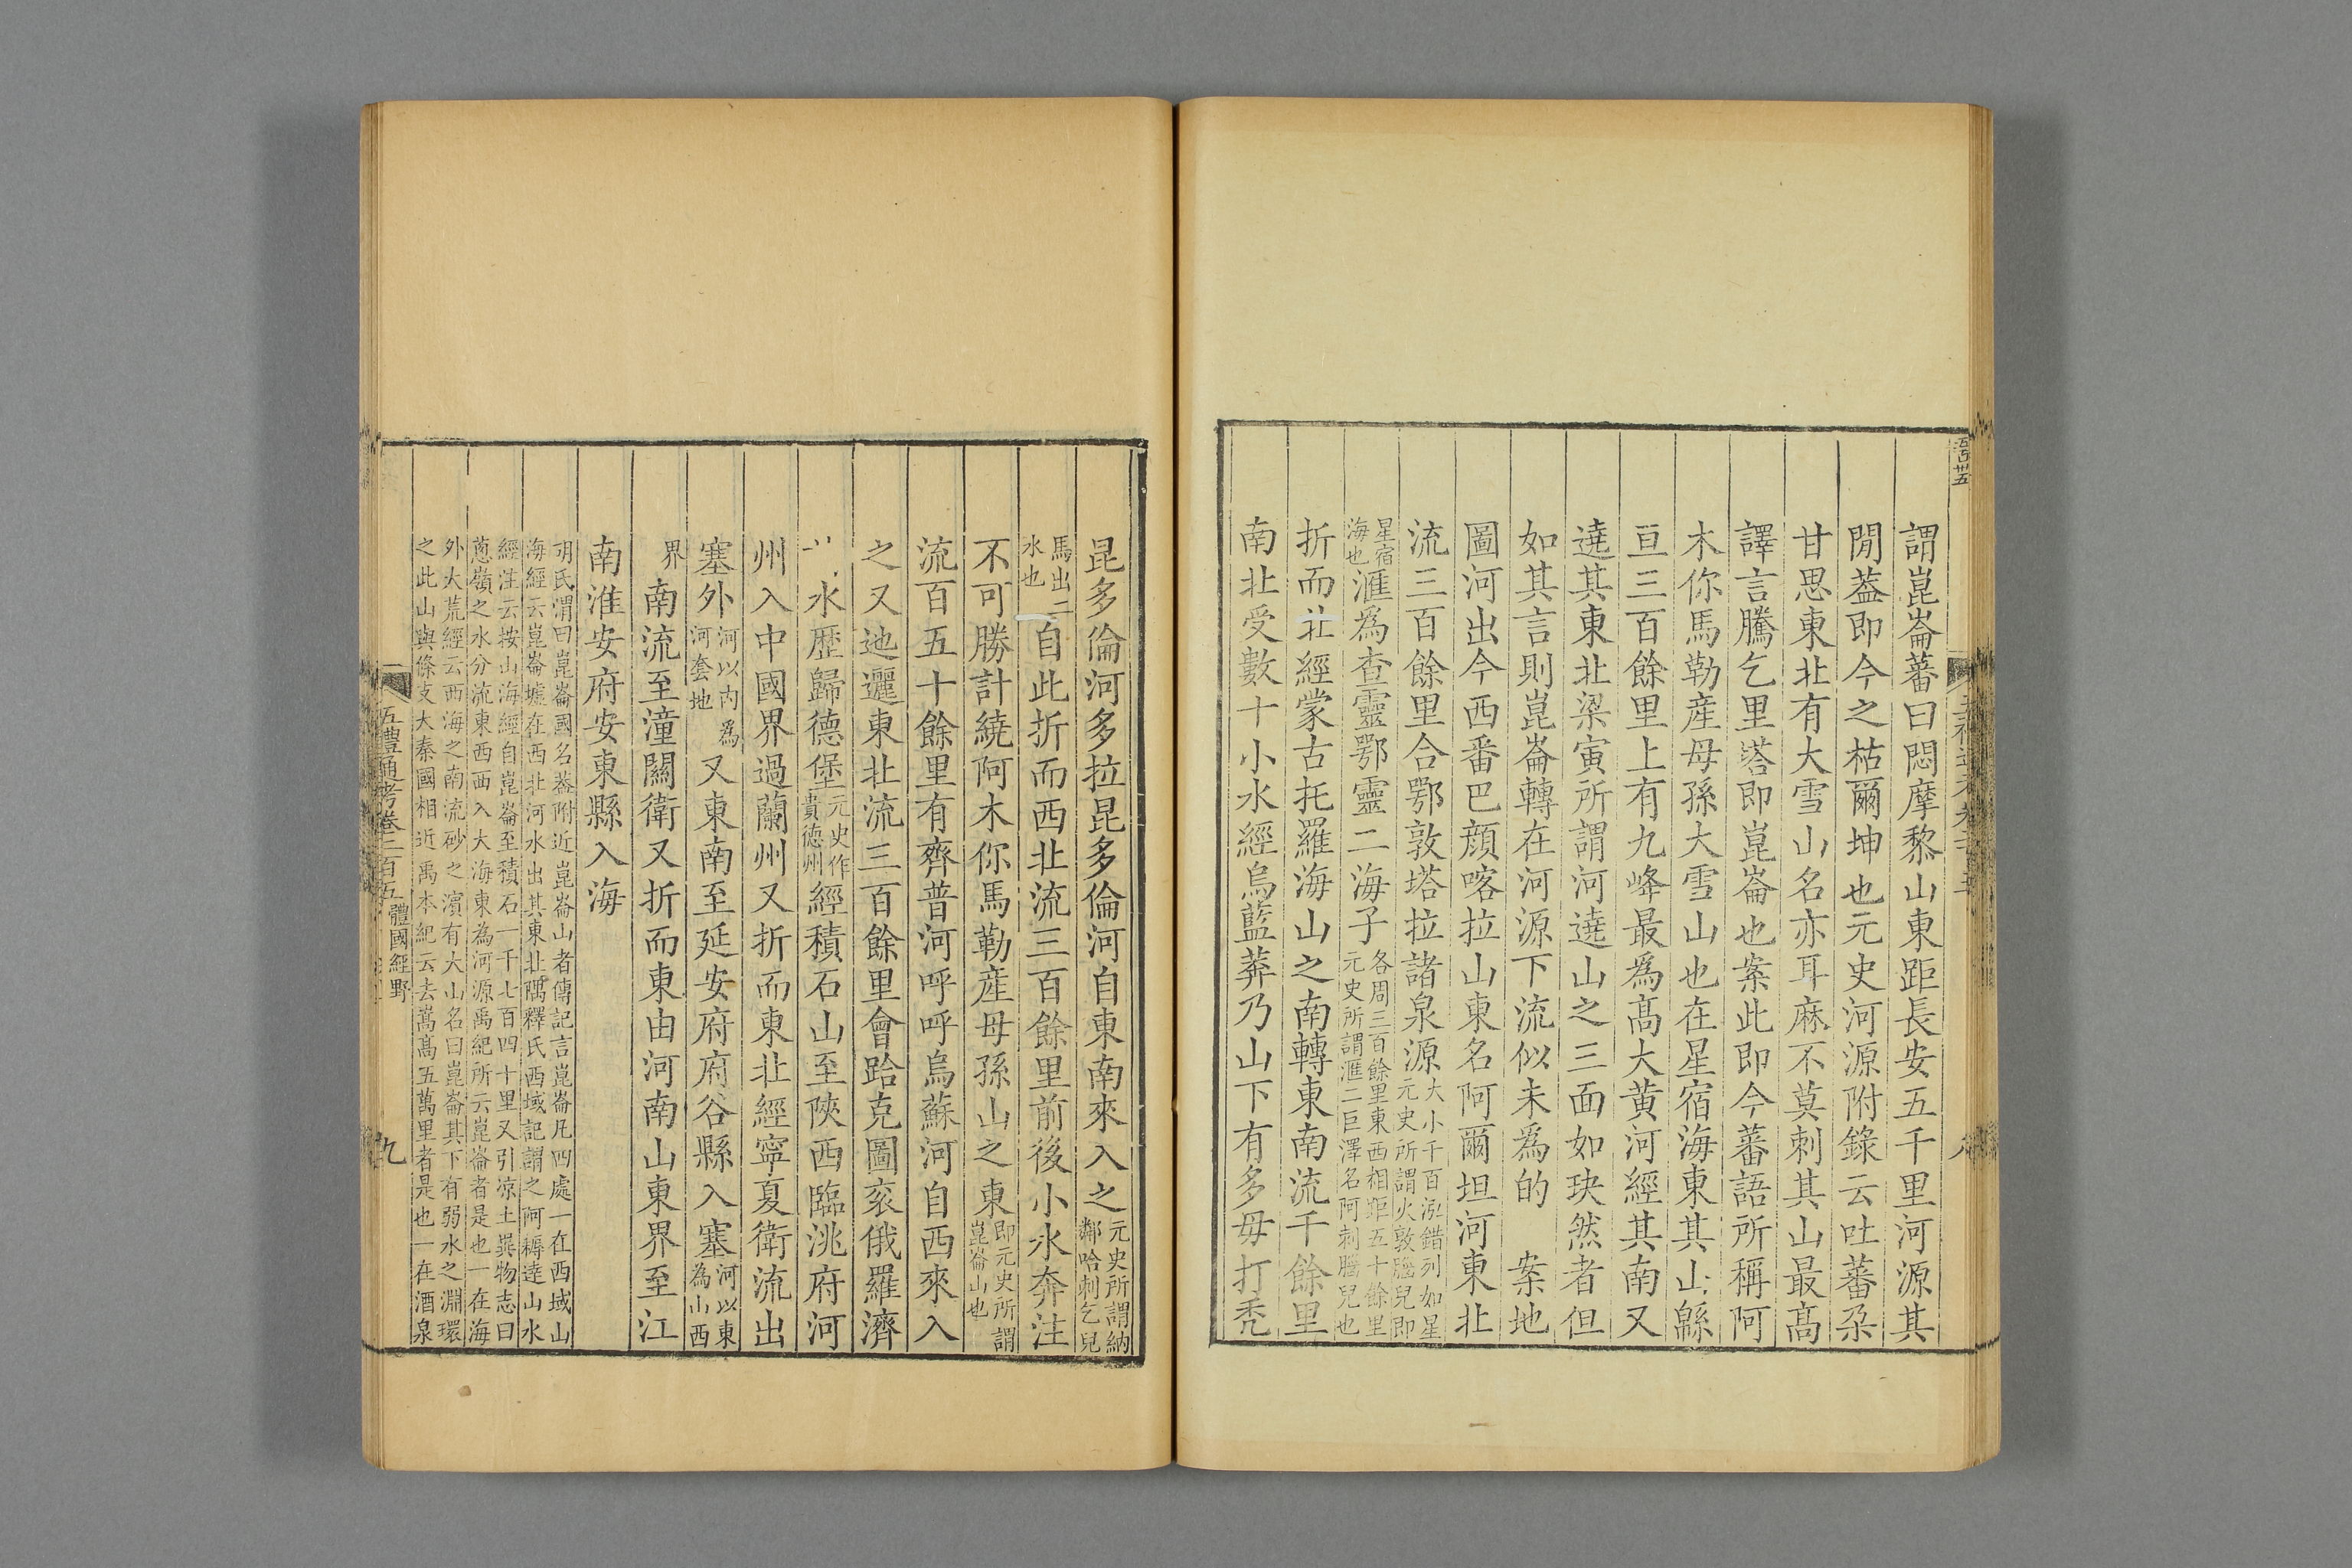 謂崑崙蕃曰悶摩黎山東距長安五千里河源其
閒葢即今之枯爾坤也元史河源附錄云吐蕃朶
甘思東北有大雪山名亦耳麻不莫剌其山最高
譯言騰乞里塔即崑崙也案此即今蕃語所稱阿
木你馬勒産母孫大雪山也在星宿海東其山緜
亘三百餘里上有九峰最爲高大黄河經其南又
遶其東北梁寅所謂河遶山之三面如玦然者但
如其言則崑崙轉在河源下流似未爲的　案地
圖河出今西番巴顔喀拉山東名阿爾坦河東北
流三百餘里合鄂敦塔拉諸泉源大小千百泓錯列如星元史所謂火敦腦兒即
星宿海也滙爲查靈鄂靈二海子各周三百餘里東西相距五十餘里元史所謂滙二巨澤名阿剌腦兒也
折而北經蒙古托羅海山之南轉東南流千餘里
南北受數十小水經烏藍莽乃山下有多母打禿
昆多倫河多拉昆多倫河自東南來入之元史所謂納鄰哈剌乞兒
馬出二水也自此折而西北流三百餘里前後小水奔注
不可勝計繞阿木你馬勒産母孫山之東即元史所謂崑崙山也
流百五十餘里有齊普河呼呼烏蘇河自西來入
之又迤邐東北流三百餘里會跲克圖衮俄羅濟
水歴歸德堡元史作貴德州經積石山至陝西臨洮府河
州入中國界過蘭州又折而東北經寧夏衛流出
塞外河以内爲河套地又東南至延安府府谷縣入塞河以東為山西
界南流至潼關衛又折而東由河南山東界至江
南淮安府安東縣入海
胡氏渭曰崑崙國名葢附近崑崙山者傳記言崑崙凡四處一在西域山
海經云崑崙墟在西北河水出其東北隅釋氏西域記謂之阿耨達山水
經注云按山海經自崑崙至積石一千七百四十里又引凉土異物志曰
蔥嶺之水分流東西西入大海東為河源禹紀所云崑崙者是也一在海
外大荒經云西海之南流砂之濱有大山名曰崑崙其下有弱水之淵環
之此山與條支大秦國相近禹本紀云去嵩高五萬里者是也一在酒泉
五禮通考卷二百五　體國經野
九